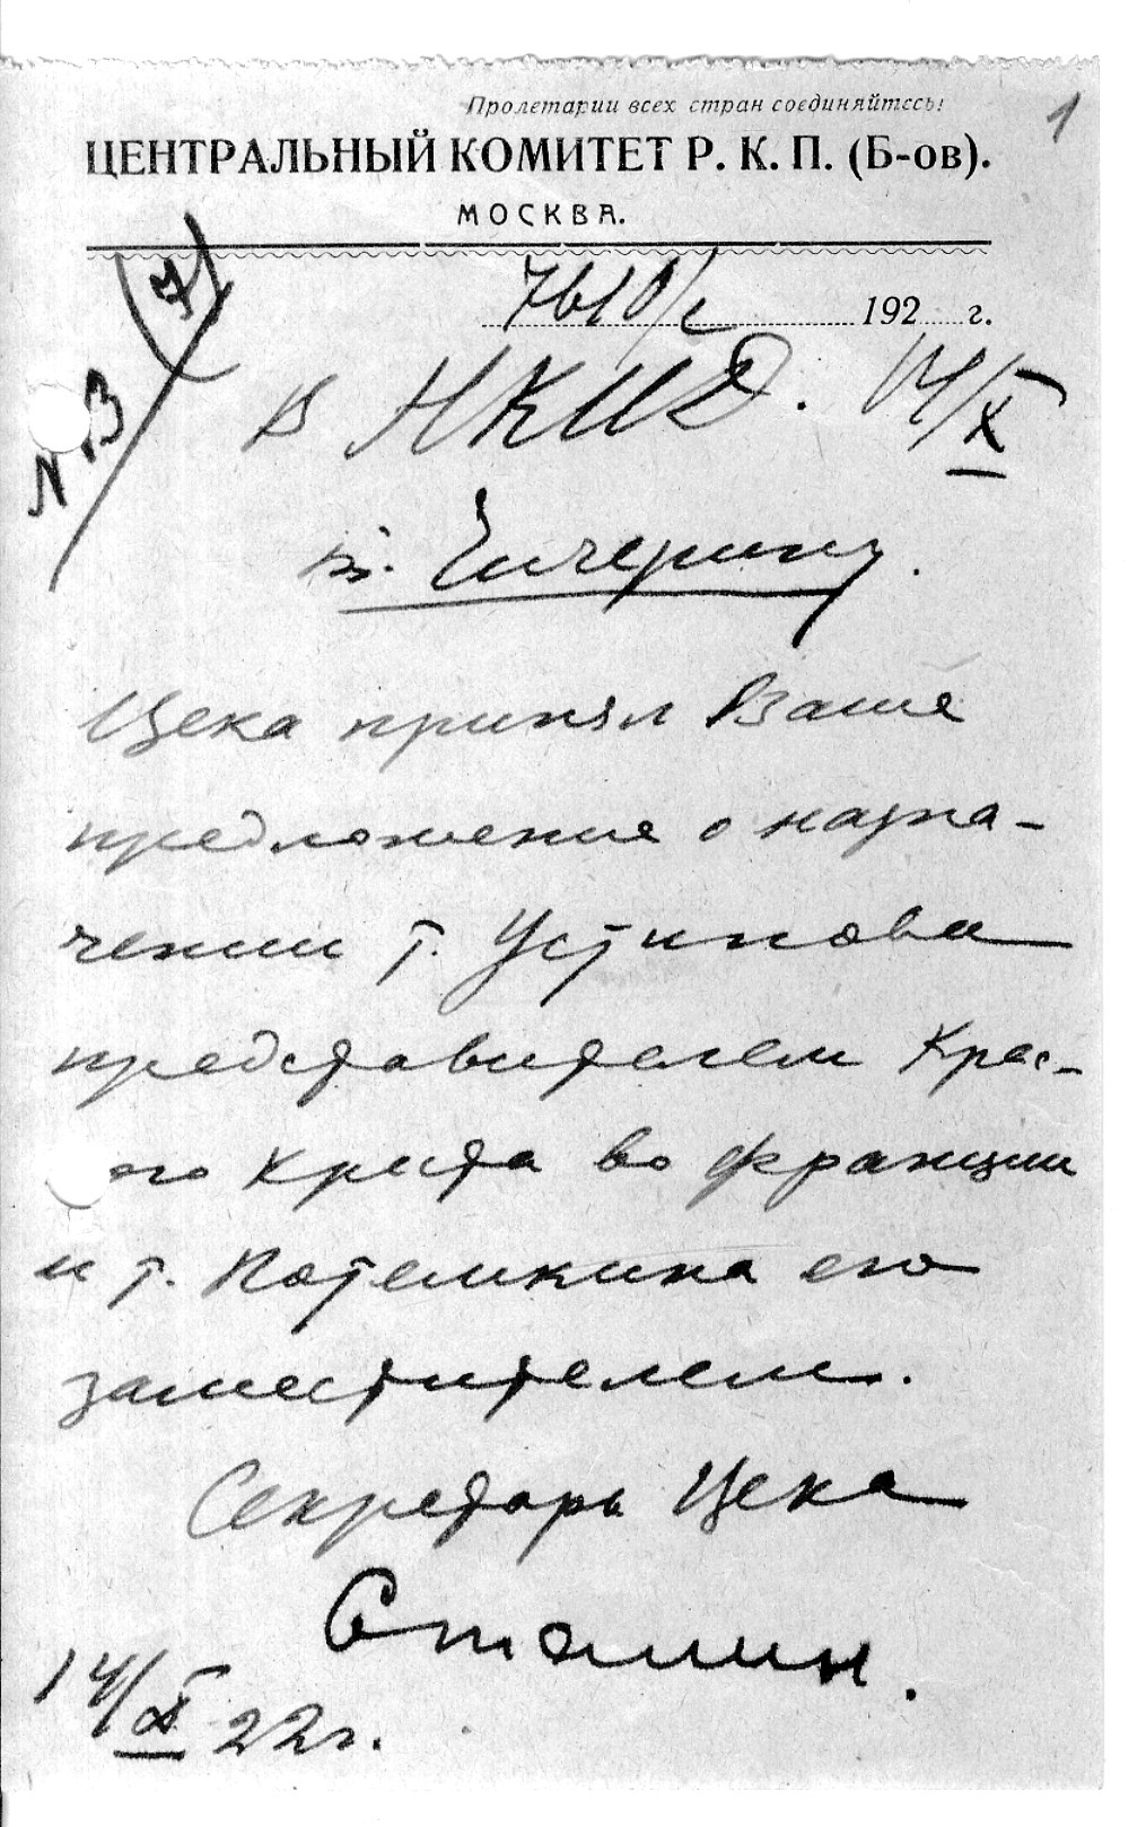 1
Пролетарии всех стран соединяйтесь!
ЦЕНТРАЛЬНЫЙ КОМИТЕТ Р. К. П. (Б-ов).
МОСКВА.
7610/с 192 г.
N 3
В НКИД. 14/X
т. Чичерину.
Цека принял Ваше
предложение о назна-
чении т. Устинова
представителем Крас-
ого Креста во Франции
и т. Потемкина его
заместителем.
Секретарь Цека
Сталин.
14/X 22 г.